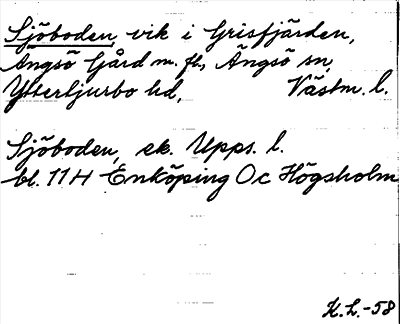 Sjöboden, vik i Grisfjärden,
Ängsö Gård m. fl., Ängsö sn,
Ytterbjurbo hd, Västm. l.
Sjöboden, ek. Upps. l.
bl. 11H Enköping Oc Högsholm
K.L.-58